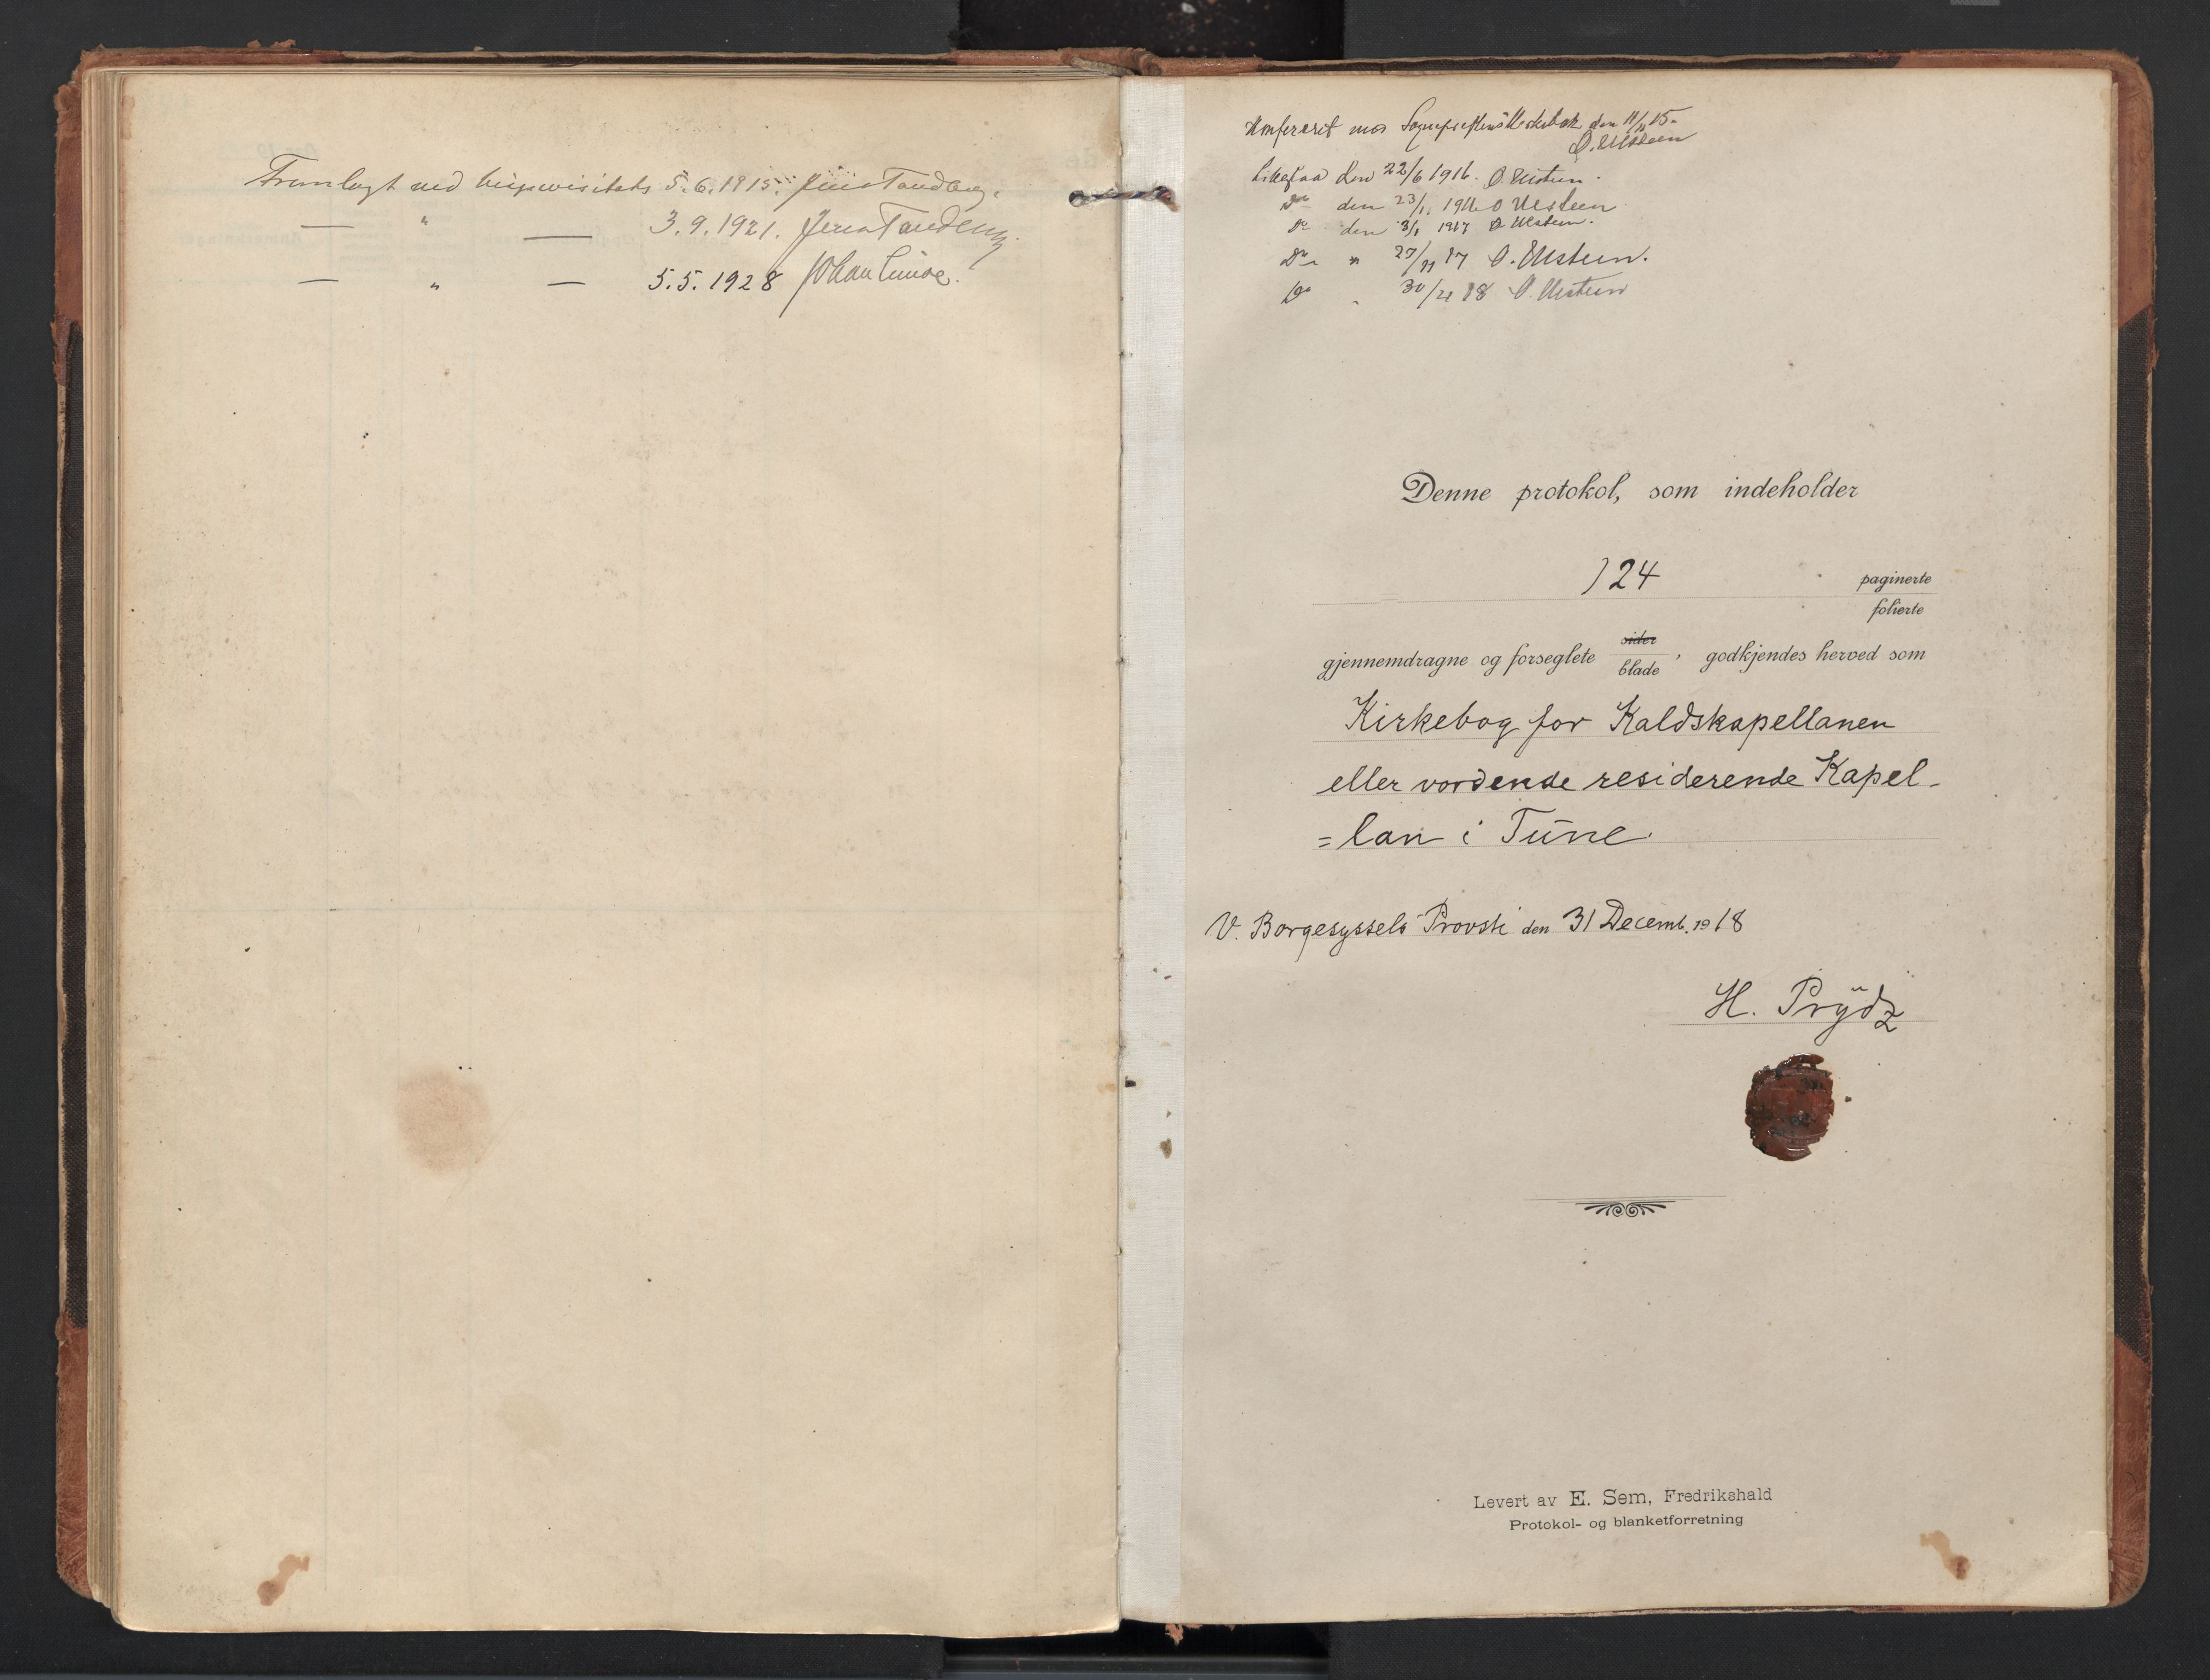 Fremlagt ved bispevisitats 5.6.1915. Jens Tandberg.
— " — 3.9.1921. Jens Tandberg
— " — 5.5.1928 Johan Lunde.
Konfereret mot Sogneprestens Kirkebok den 11/11 15.
O. Ulsteen
Likesaa den 22/6 1916. O. Ulsteen.
Do den 23/1 1916 O Ulsteen
Do den 3/1 1917 O Ulsteen.
Do " 27/11 17 O. Ulsteen.
Do " 30/4 18 O. Ulsteen
Denne protokol, som indeholder
124 paginerte
folierte
gjennemdragne og forseglete sider blade, godkjendes herved som
Kirkebog for Kaldskapellanen
eller vordende residerende Kapel-
=lan i Tune.
V. Borgesyssels Provsti den 31 Decemb. 1918
H. Prydz
Levert av E. Sem, Fredrikshald
Protokol- og blanketforretning